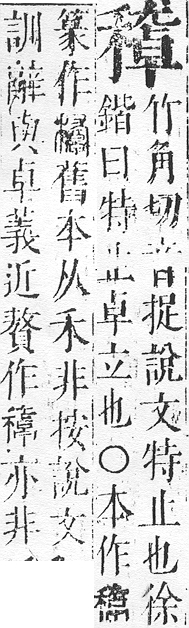 䅵
竹角切音捉說文特止也徐
鍇曰特止卓立也○本作
篆作舊本从禾非按說文
訓辭與卓義近贅作亦非